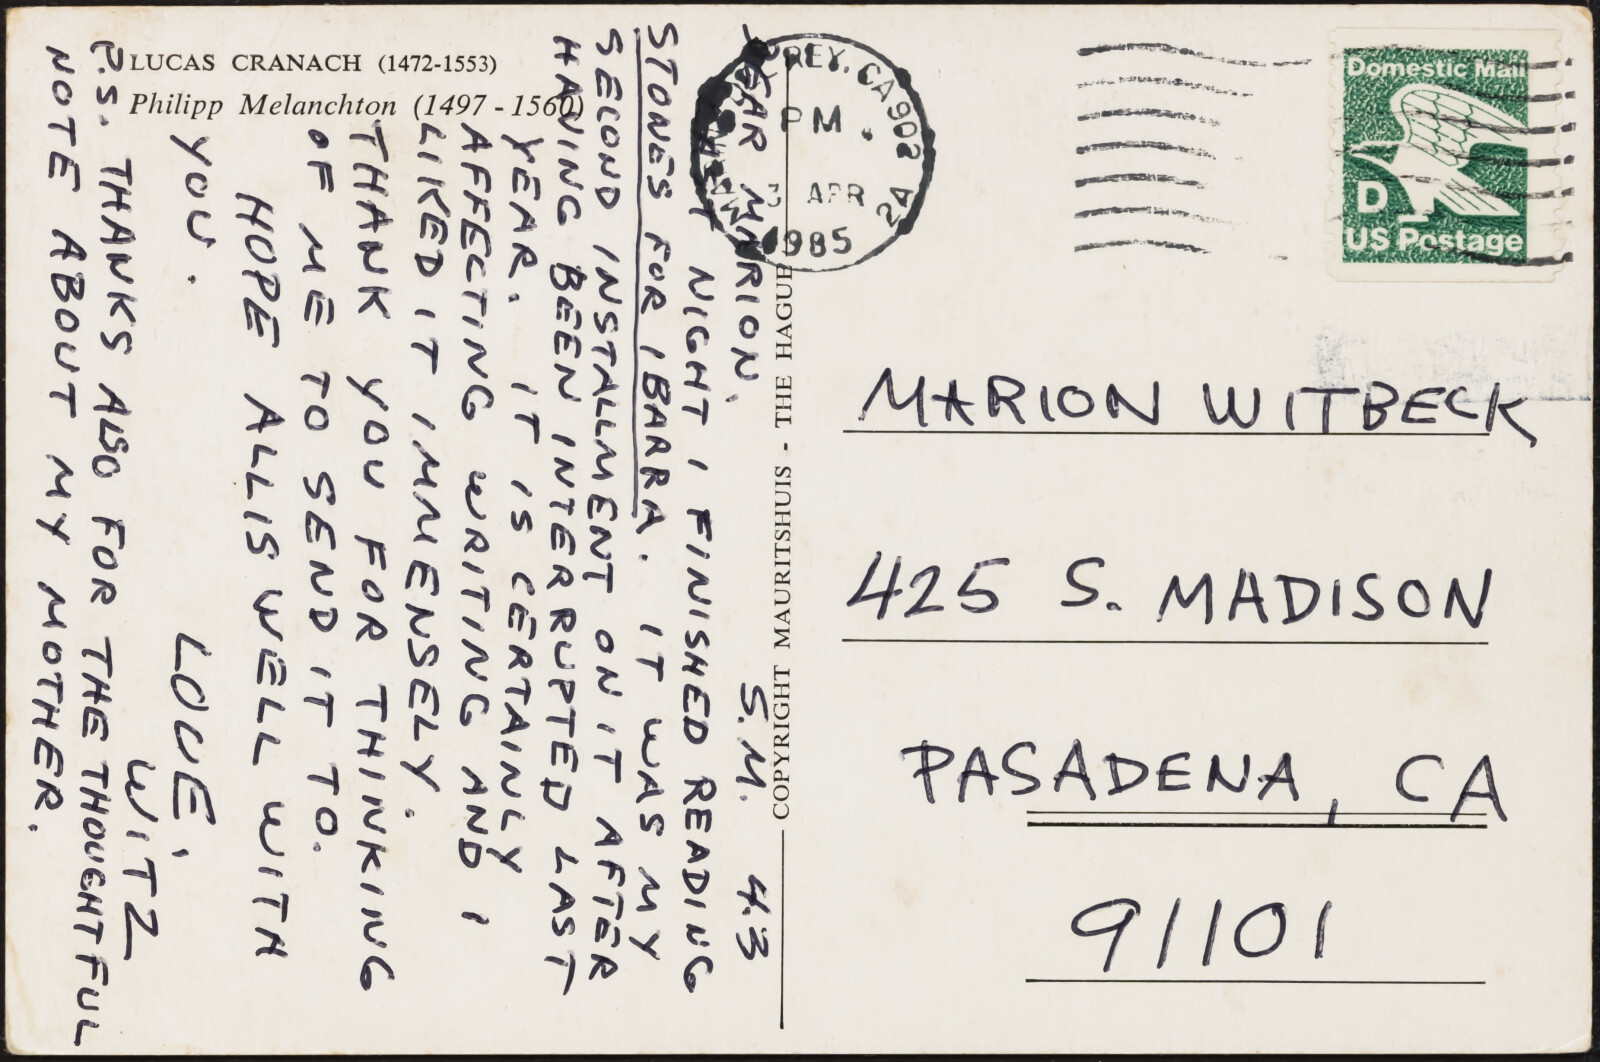 LUCAS CRANACH (1472-1553)
Philipp Melanchton (1497 - 1560)
COPYRIGHT MAURITSHUIS - THE HAGUE
S.M. 4.3
DEAR MARION,
LAST NIGHT I FINISHED READING
STONES FOR IBARRA. IT WAS MY
SECOND INSTALLMENT ON IT AFTER
HAVING BEEN INTERRUPTED LAST
YEAR. IT IS CERTAINLY
AFFECTING WRITING AND I
LIKED IT IMMENSELY.
THANK YOU FOR THINKING
OF ME TO SEND IT TO.
HOPE ALL IS WELL WITH
YOU.
LOVE,
WITZ
P.S. THANKS ALSO FOR THE THOUGHTFUL
NOTE ABOUT MY MOTHER.
REY, CA 902
PM
3 APR
1985
24
Domestic Mail
D
US Postage
MARION WITBECK
425 S. MADISON
PASADENA, CA
91101